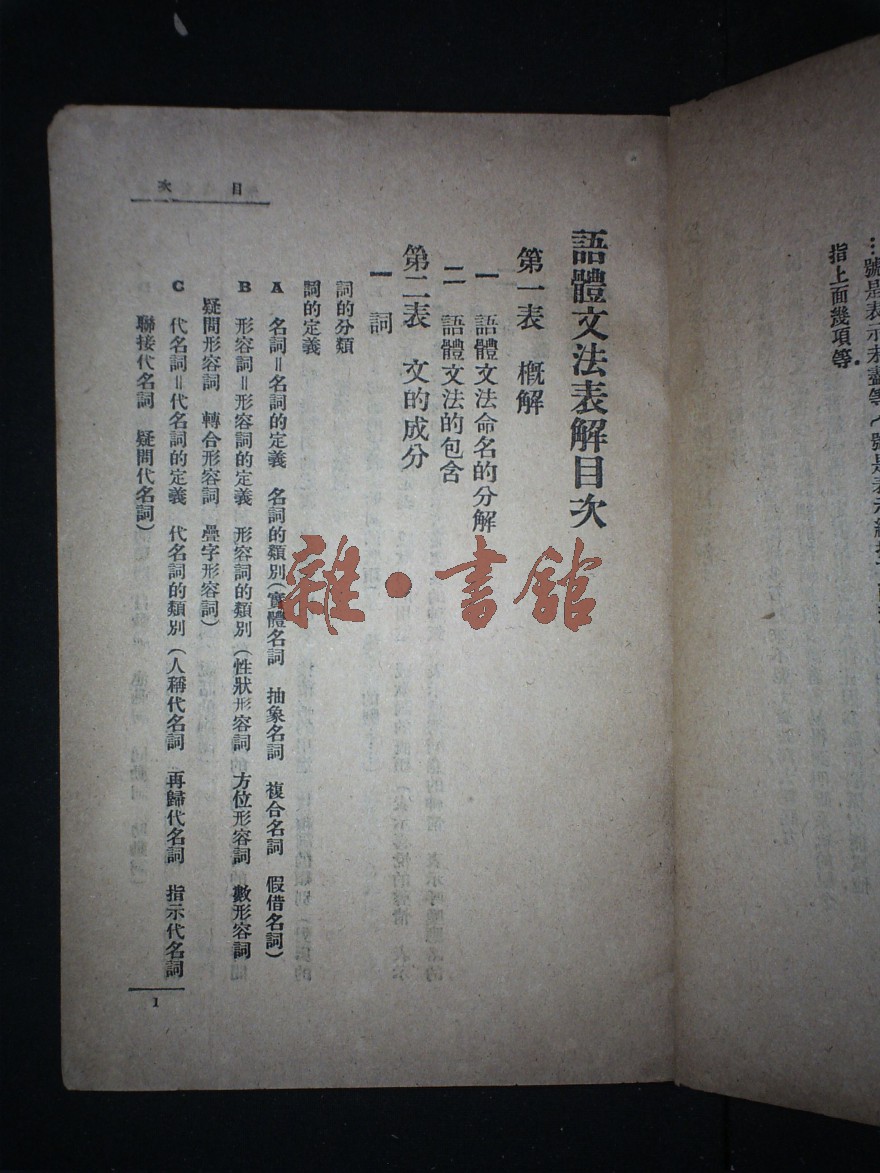 …號是表示未盡等
指上面幾項等.
語體文法表解目次
第一表 概解
一 語體文法命名的分解
二 語體文法的包含
第二表 文的成分
一 詞
詞的分類
詞的定義
A 名詞＝名詞的定義 名詞的類別(實體名詞 抽象名詞 複合名詞 假借名詞)
B 形容詞＝形容詞的定義 形容詞的類別(性狀形容詞 方位形容詞 數形容詞
疑問形容詞 轉合形容詞 疊字形容詞)
C 代名詞＝代名詞的定義 代名詞的類別(人稱代名詞 再歸代名詞 指示代名詞
聯接代名詞 疑問代名詞)
目次
1
雜·書館